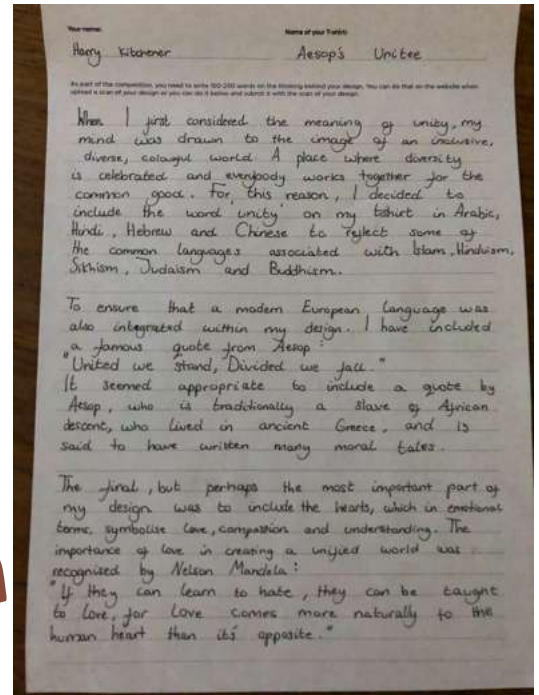 Your name:
Name of your T-shirt:
Harry Kitchener
Aesop's Unitee
As part of the competition, you need to write 150-200 words on the thinking behind your design. You can do that on the website when
upload a scan of your design or you can do it below and submit it with the scan of your design.
When I first considered the meaning of unity, my
mind was drawn to the image of an inclusive,
diverse, colourful world. A place where diversity
is celebrated and everybody works together for the
common good. For this reason, I decided to
include the word 'unity' on my tshirt in Arabic,
Hindi, Hebrew and Chinese to reflect some of
the common languages associated with Islam, Hinduism,
Sikhism, Judaism and Buddhism.
To ensure that a modern European language was
also integrated within my design. I have included
a famous quote from Aesop:
"United we stand, Divided we fall."
It seemed appropriate to include a quote by
Aesop, who is traditionally a slave of African
descent, who lived in ancient Greece, and is
said to have written many moral tales.
The final, but perhaps the most important part of
my design was to include the hearts, which in emotional
terms, symbolise love, compassion and understanding. The
importance of love in creating a unified world was
recognised by Nelson Mandela:
"If they can learn to hate, they can be taught
to love, for love comes more naturally to the
human heart than its' opposite."